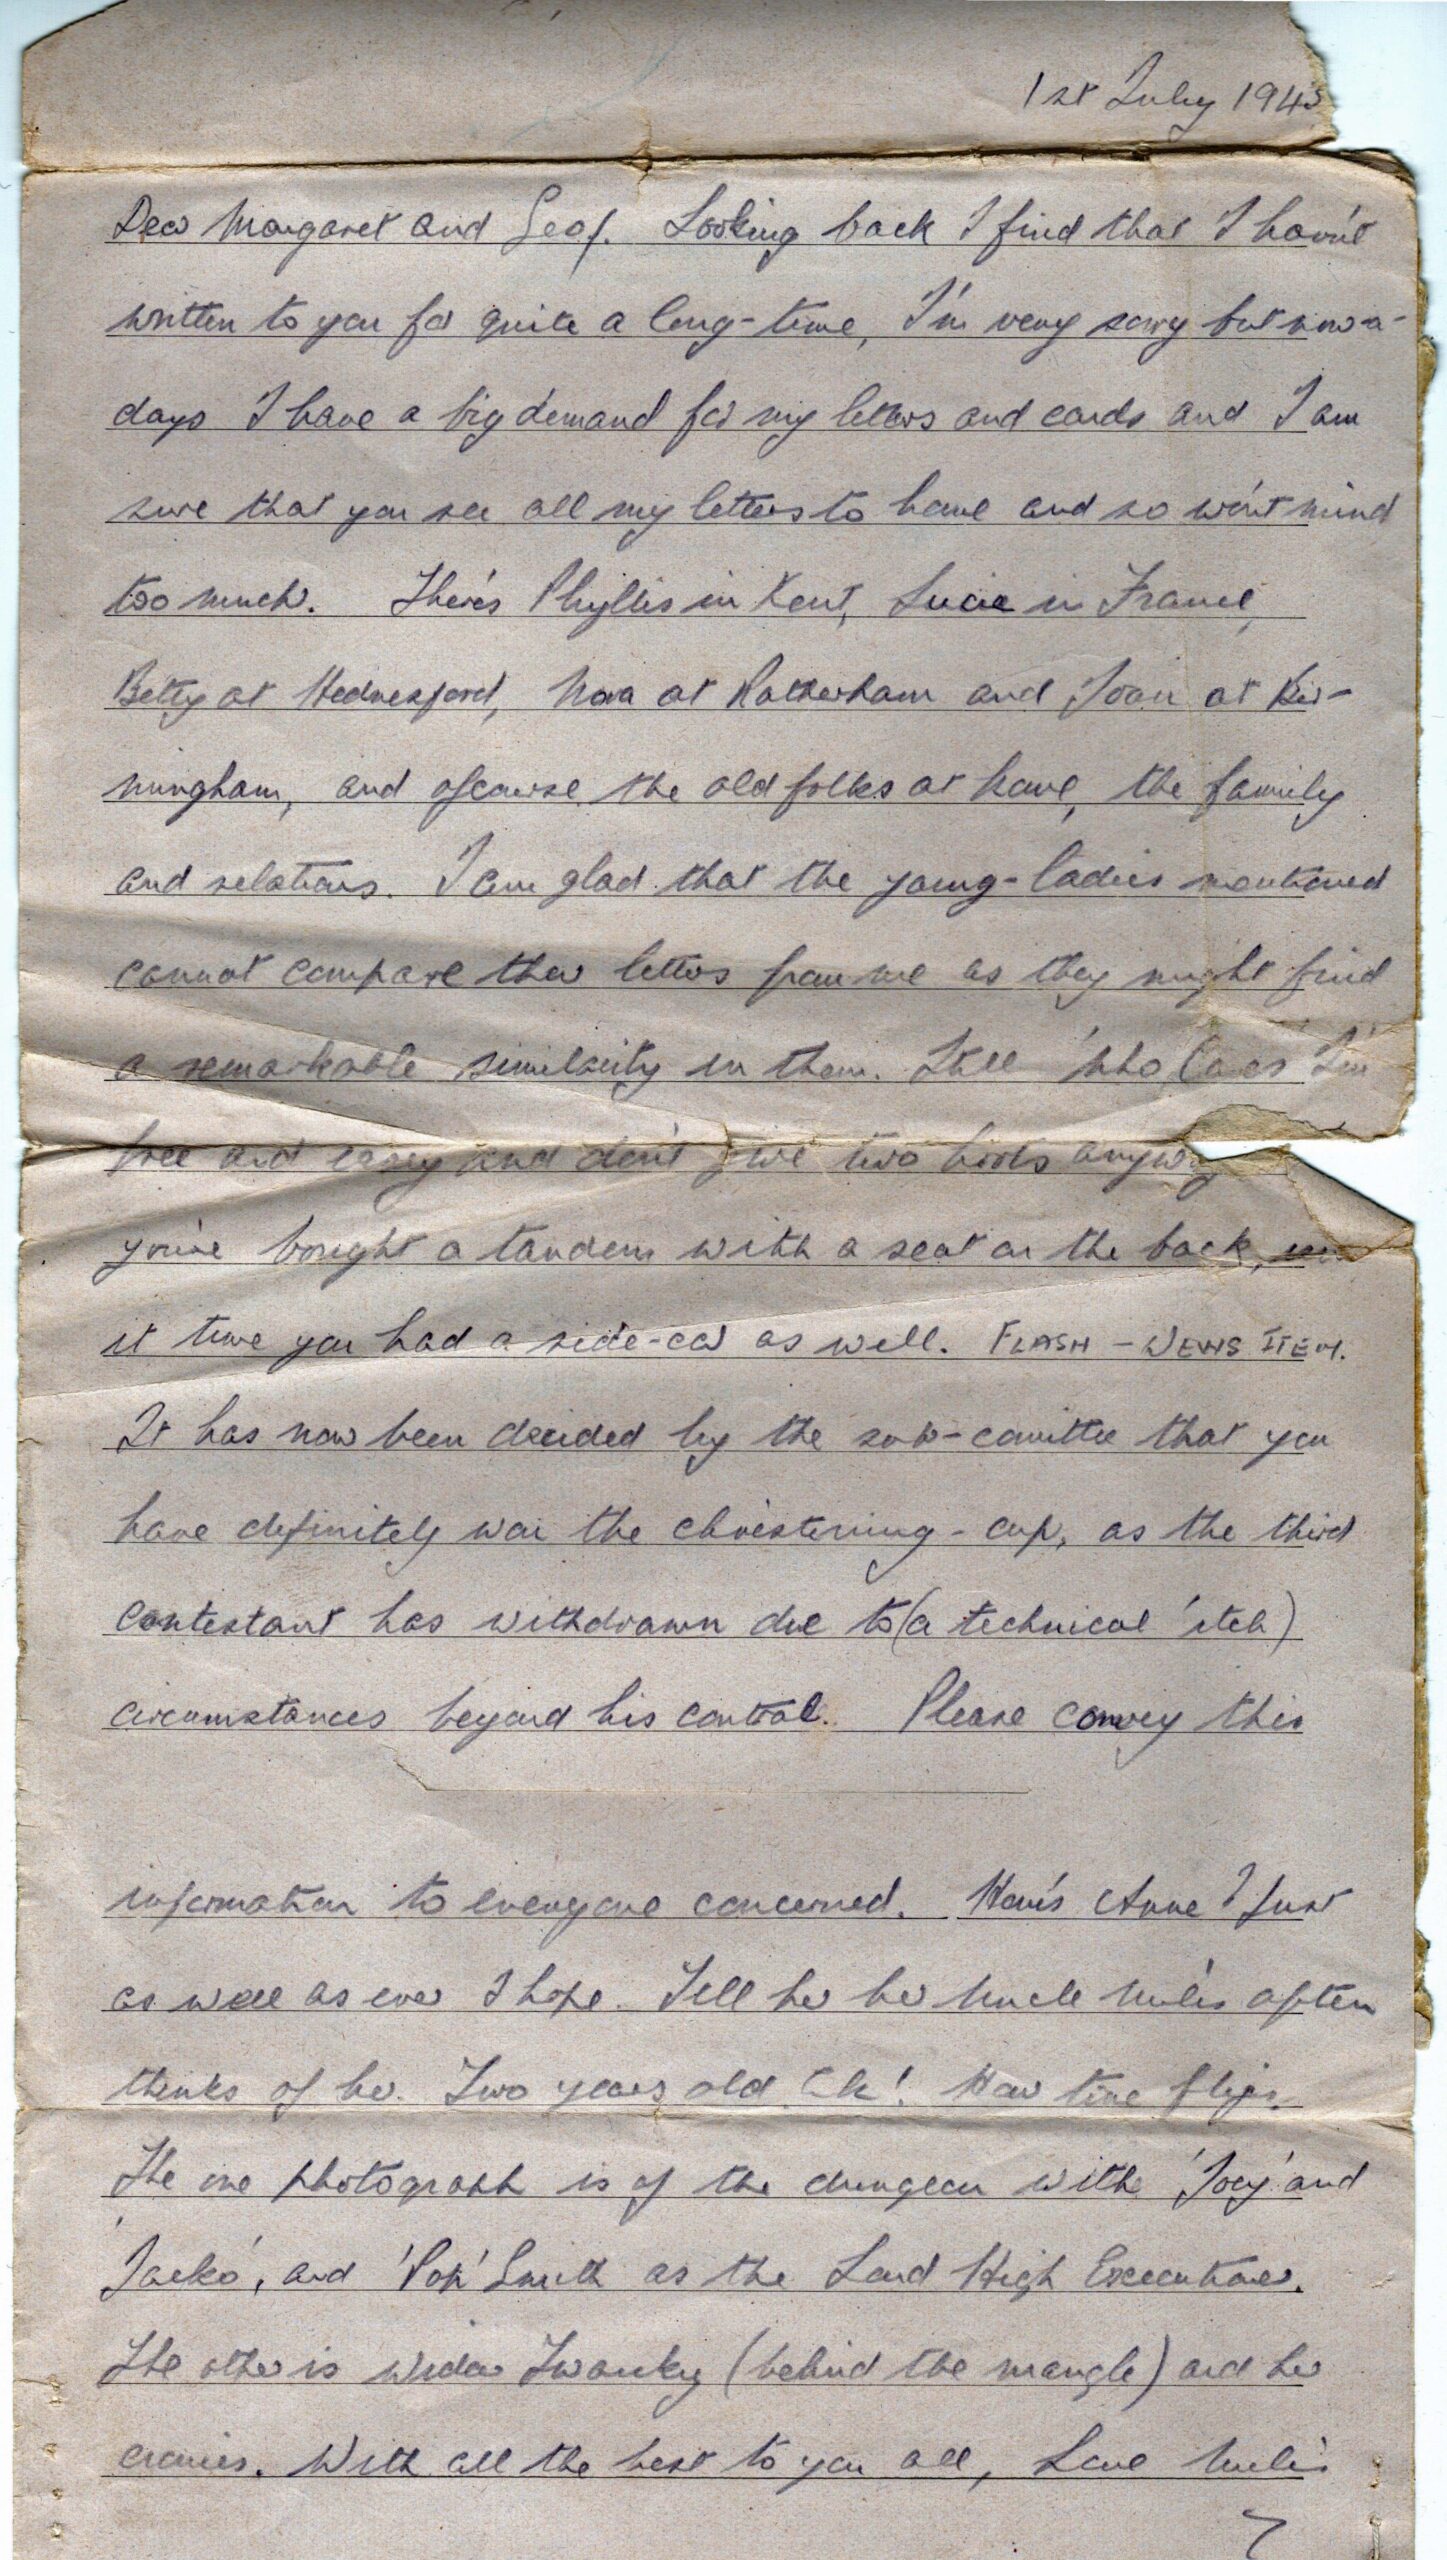 1st July 194
Dear Margaret and Geof. Looking back I find that I havn't
written to you for quite a long-time, I'm very sorry but now-a-
days I have a big demand for my letters and cards and I am
sure that you see all my letters to home and so won't mind
too much. There's Phyllis in Kent, Lucie in France,
Betty at Hednesford, Nora at Rotherham and Joan at Bir-
mingham, and ofcourse the old folks at home, the family
and relations. I am glad that the young-ladies mentioned
cannot compare their letters from me as they might find
a remarkable similarity in them. Still 'who cares' I'm
free and easy and don't give two hoots
you've bought a tandem with a seat on the back,
it time you had a side-car as well. FLASH - NEWS ITEM.
It has now been decided by the sub-comittee that you
have definitely won the christening-cup, as the third
contestant has withdrawn due to (a technical 'itch)
circumstances beyond his control. Please convey this
information to everyone concerned. How's Anne? Just
as well as ever I hope. Tell her her Uncle often
thinks of her. Two years old Eh! How time flies.
The one photograph is of the dungeon with 'Joey' and
'Jacko', and 'Pop' Smith as the Lord High Executioner.
The other is Widow Twankey (behind the mangle) and her
cronies. With all the best to you all, Love